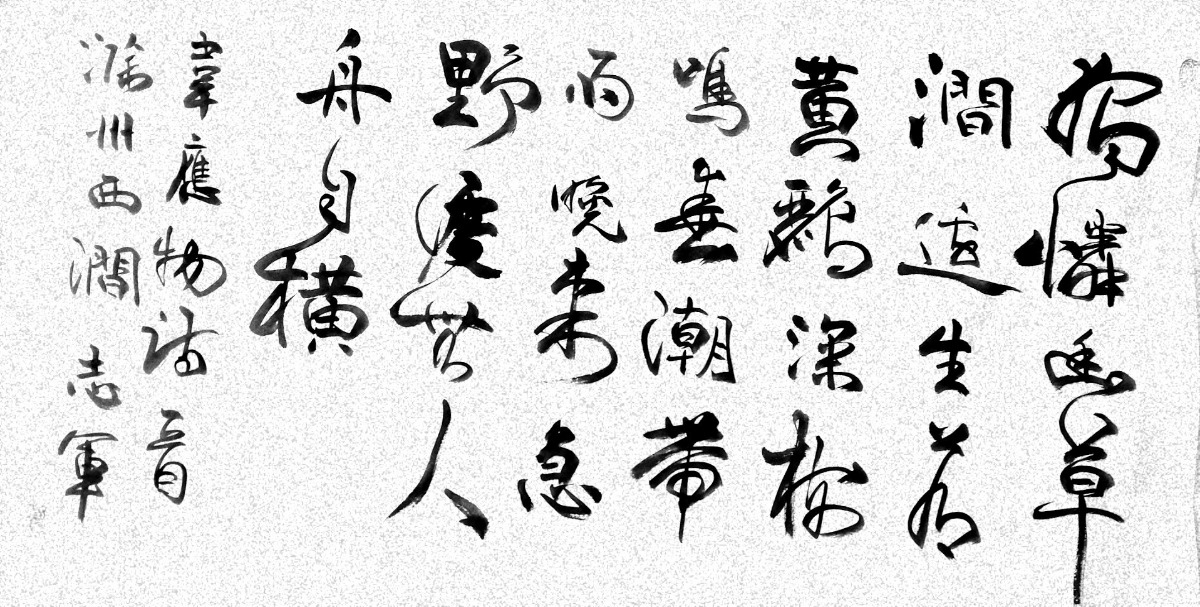 獨憐幽草
澗邊生上有
黃鸝深樹
鳴春潮帶
雨晚來急
野渡無人
舟自橫
韋應物詩一首
滁州西澗 志軍